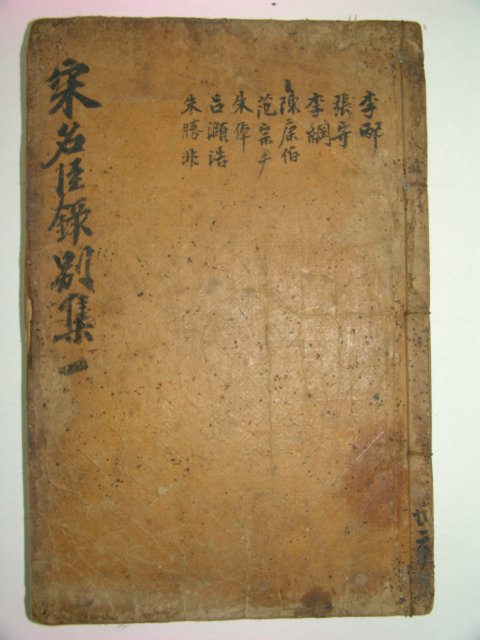 李邴
張守
李綱
陳康伯
范宗尹
朱倬
呂頤浩
朱勝非
宋名臣錄別集一